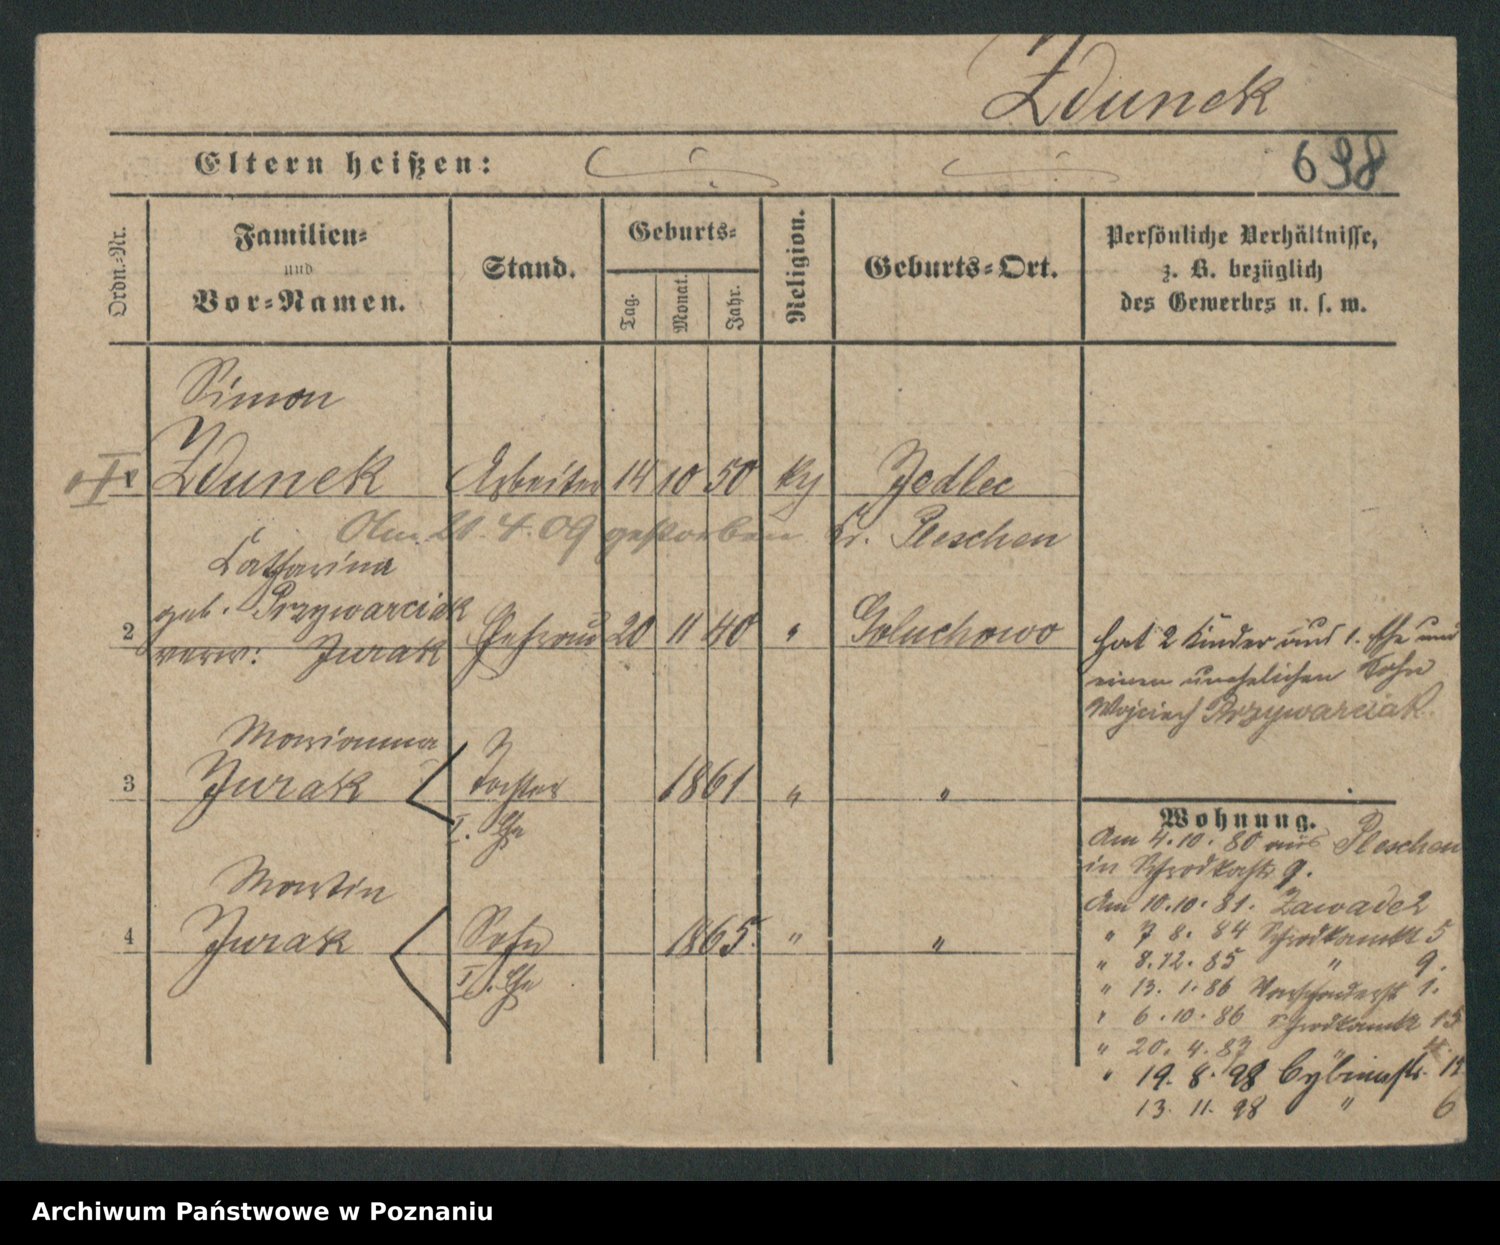 Zdunek
Eltern heißen:
698
Ordn.-Nr.
Familien-
und
Vor-Namen.
Stand.
Geburts-
Tag.
Monat.
Jahr.
Religion.
Geburts-Ort.
Persönliche Verhältnisse,
z. B. bezüglich
des Gewerbes u. s. w.
Simon
Zdunek Arbeiter 14 10 50 Jedlec
Am 21. 4. 09 gestorben Kr. Pleschen
Catharina
geb. Przywarciak
2 Ehefrau 20 11 40 " Goluchowo
verw: Jurak
Hat 2 Kinder aus 1. Ehe und
einen unehelichen Sohn
Wojciech Przywarciak
Marianna
3 Jurak Tochter 1861 " "
I. Ehe
Martin
4 Jurak Sohn 1865. " "
I. Ehe
Wohnung.
Am 4. 10. 80 aus Pleschen
in 9.
Am 10. 10. 81. Zawade 2
" 7 8. 84 Schrodkamkt 5
" 8. 12. 85 " 9.
" 13. 1. 86 1.
" 6. 10. 86 Schrodkamkt 13
" 20. 4. 87 " 4.
" 19. 8. 98 Cybinastr. 12
13. 11. 98 " 6
Archiwum Państwowe w Poznaniu